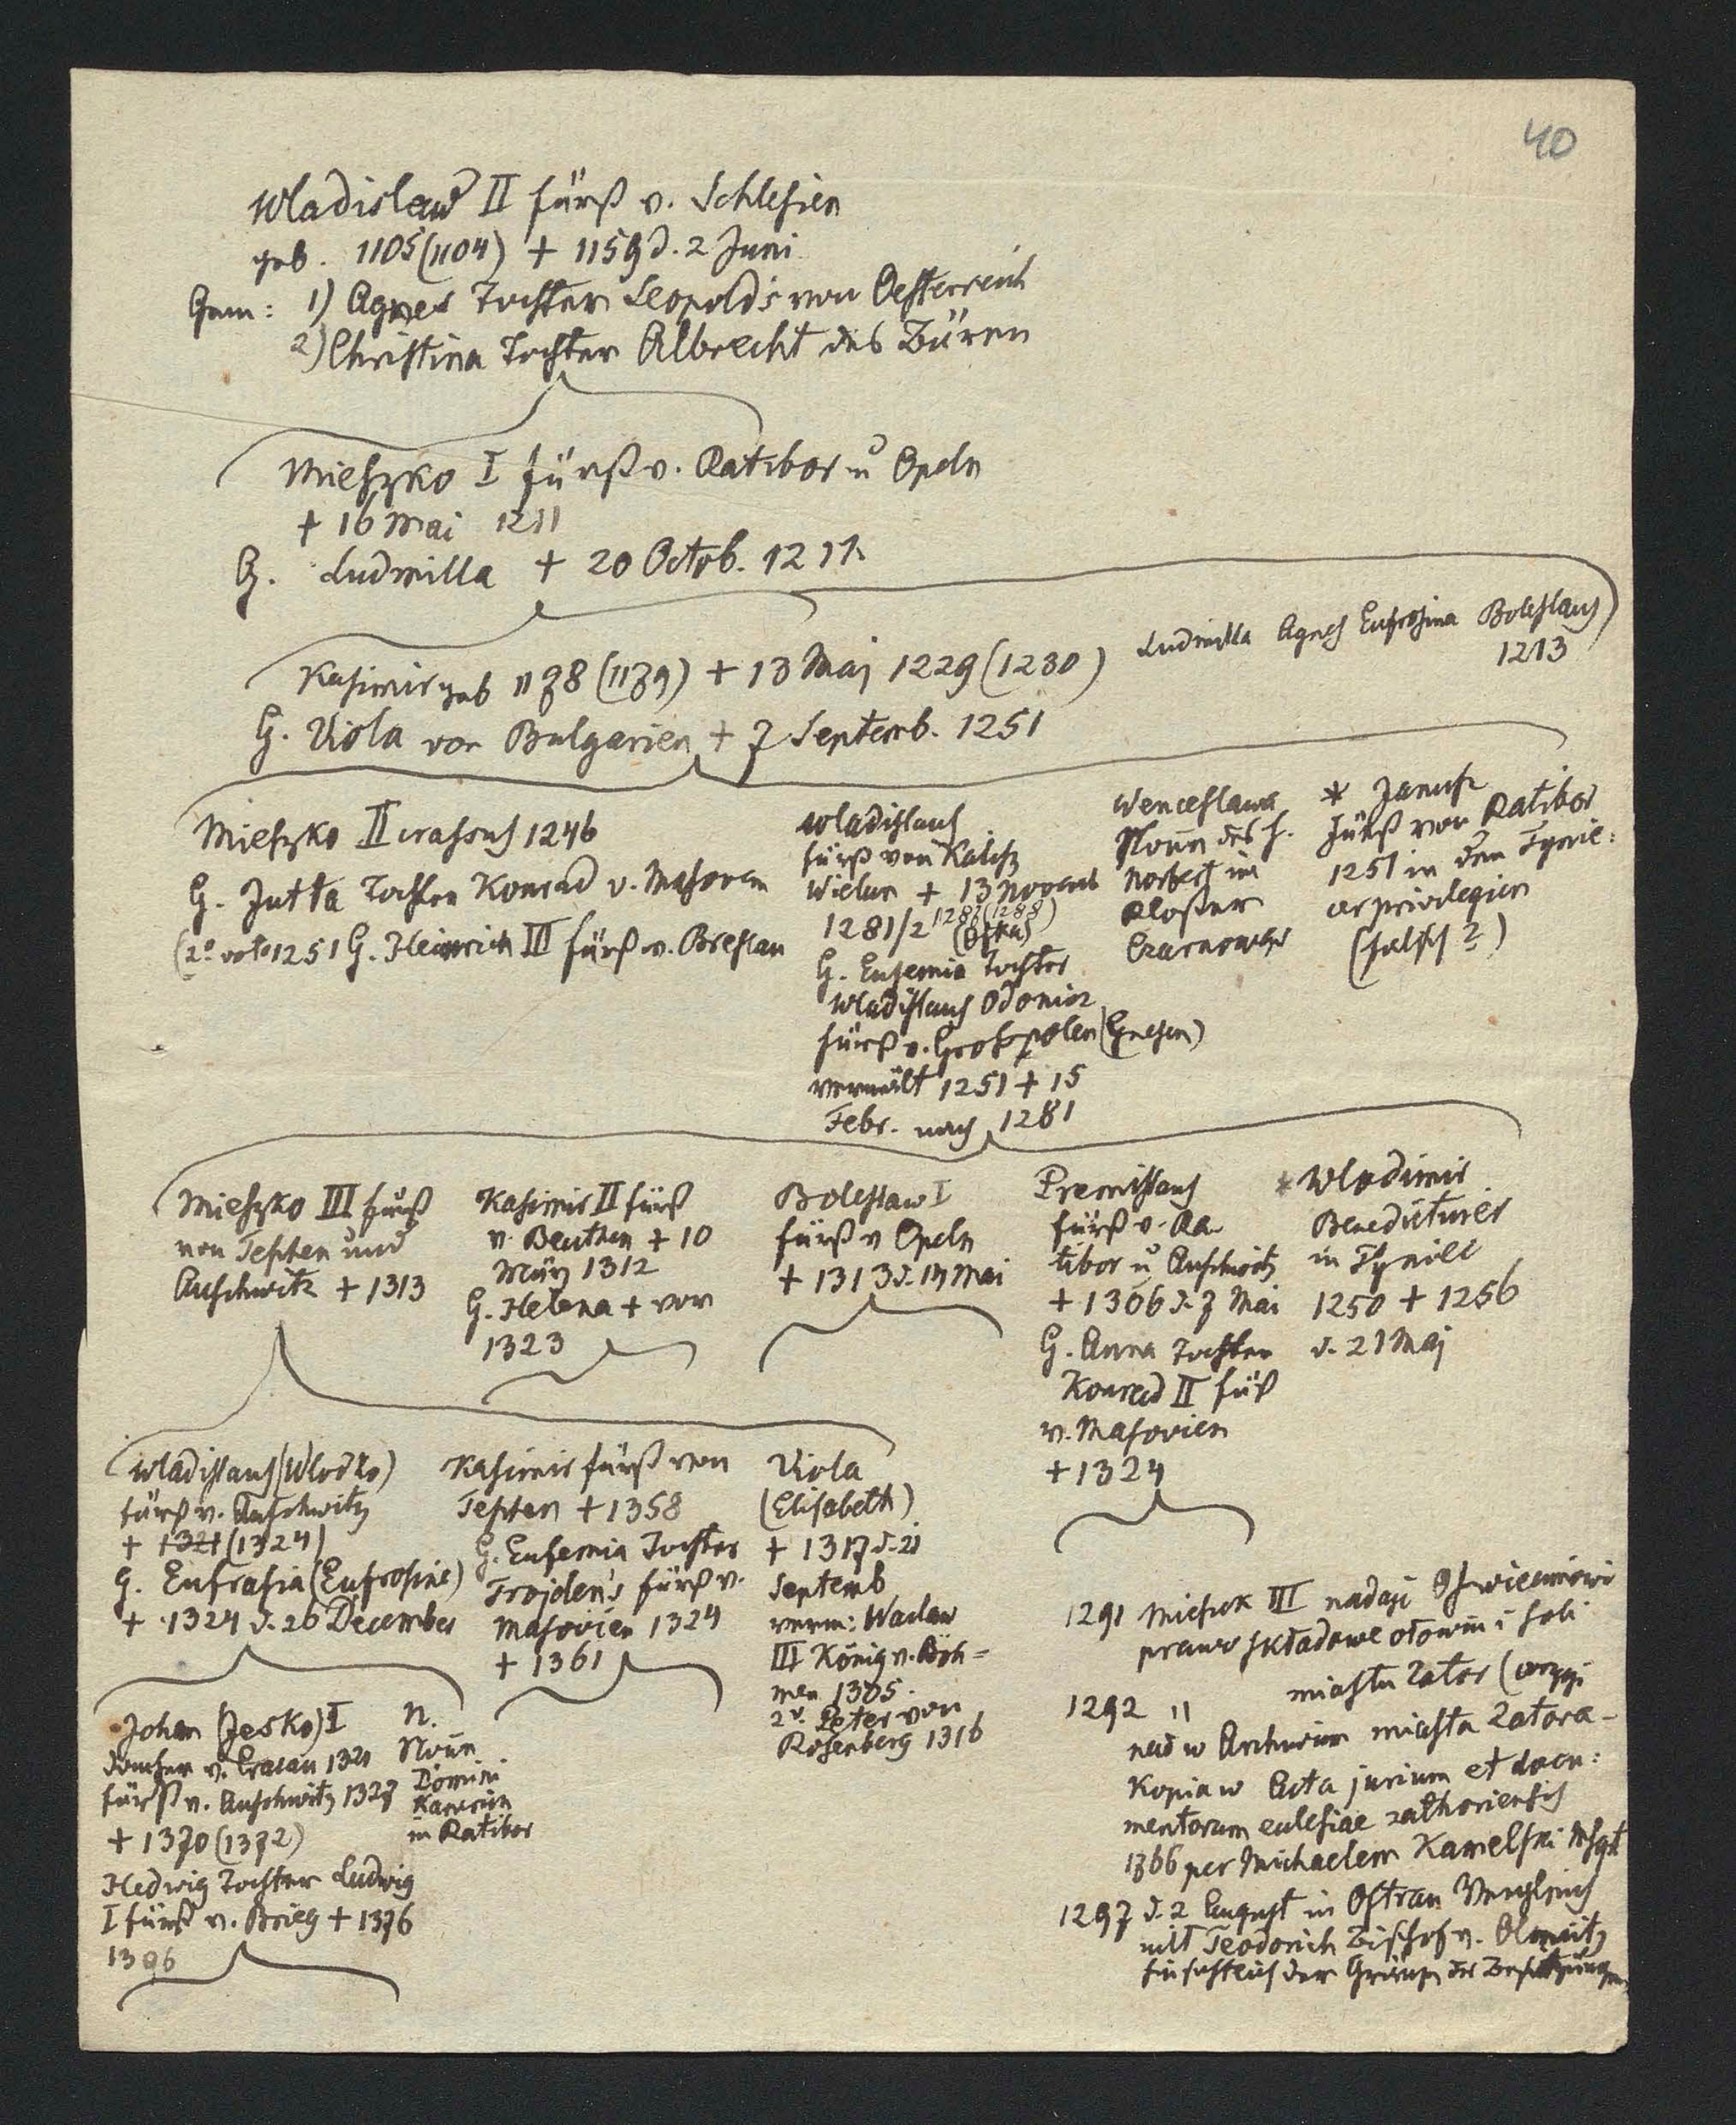 40
Wladislaw II fürst v. Schlesien
geb. 1105 (1104) + 1159 d. 2 Juni
Gem: 1) Agnes Tochter Leopold's von Oesterreich
2) Christina Tochter Albrecht des Bären
Mieszko I fürst v. Ratibor u Opeln
+ 16 Mai 1211
G. Ludmilla + 20 Octob. 1211
Kasimir geb 1178 (1179) + 13 Mai 1229 (1230)
Ludmilla Agnes Eufrosina Boleslaus
1213
G. Viola von Bulgarien + 7 Septemb. 1251
Mieszko II crassus 1246
G. Jutta Tochter Konrad v. Masoven
(2º voto 1251 G. Heinrich III fürst v. Breslau
Wladislaus
fürst von Kalisz
Wielun + 13 Novemb
1281/2 1287 (1288)
G. Eufemia Tochter
Wladislaus Odonicz
fürst v. Grosspolen (Gnesen)
vermält 1251 + 15
Febr. nach 1281
Wenceslawa
Nonn des h.
Norbert im
Kloster
Czarnowąs
* Janusz
Fürst von Ratibor
1251 in den Tynie:
cer privilegien
(falsch ?)
Mieszko III fürst
von Teschen und
Auschwitz + 1313
Kasimir II fürst
v. Beuthen + 10
März 1312
G. Helena + vor
1323
Boleslaw I
fürst v Opeln
+ 1313 d. 14 Mai
Premislaus
fürst v. Ra
tibor u Auschwitz
+ 1306 d. 7 Mai
G. Anna Tochter
Konrad II fürst
v. Masovien
+ 1324
* Wladimir
Benedictiner
in Tyniec
1250 + 1256
d. 21 Maj
Wladislaus (Wlodko)
fürst v. Auschwitz
+ 1321 (1324)
G. Eufrasia (Eufrosine)
+ 1324 d. 26 December
Kasimir fürst von
Teschen + 1358
G. Eufemia Tochter
Trojden's fürst v.
Masovien 1324
+ 1361
Viola
(Elisabeth)
+ 1317 d. 21
Septemb
verm: Waclaw
III König v. Böh=
men 1305.
2º. Peter von
Rosenberg 1316
Johan (Jesko) I
Domher v. Cracau 1321
fürst v. Auschwitz 1327
+ 1370 (1372)
Hedwig Tochter Ludwig
I fürst v. Brieg + 1376
1396
N.
Nonn
Domini
kanerin
in Ratibor
1291 Mieszk III nadaje Oswiecimowi
prawo składowe ołowiu i soli
1292 " miastu Zator (oryg
nał w Archivum miasta Zatora -
Kopia w Acta jurium et docu:
mentorum eclesiae zathoriensis
1766 per Michaelem Kamelski
1297 d. 2 August in Ostrau Vergleich
mit Teodorich Bischof v. Olmütz
hinsichtlich der Gränzen der Besitzungen